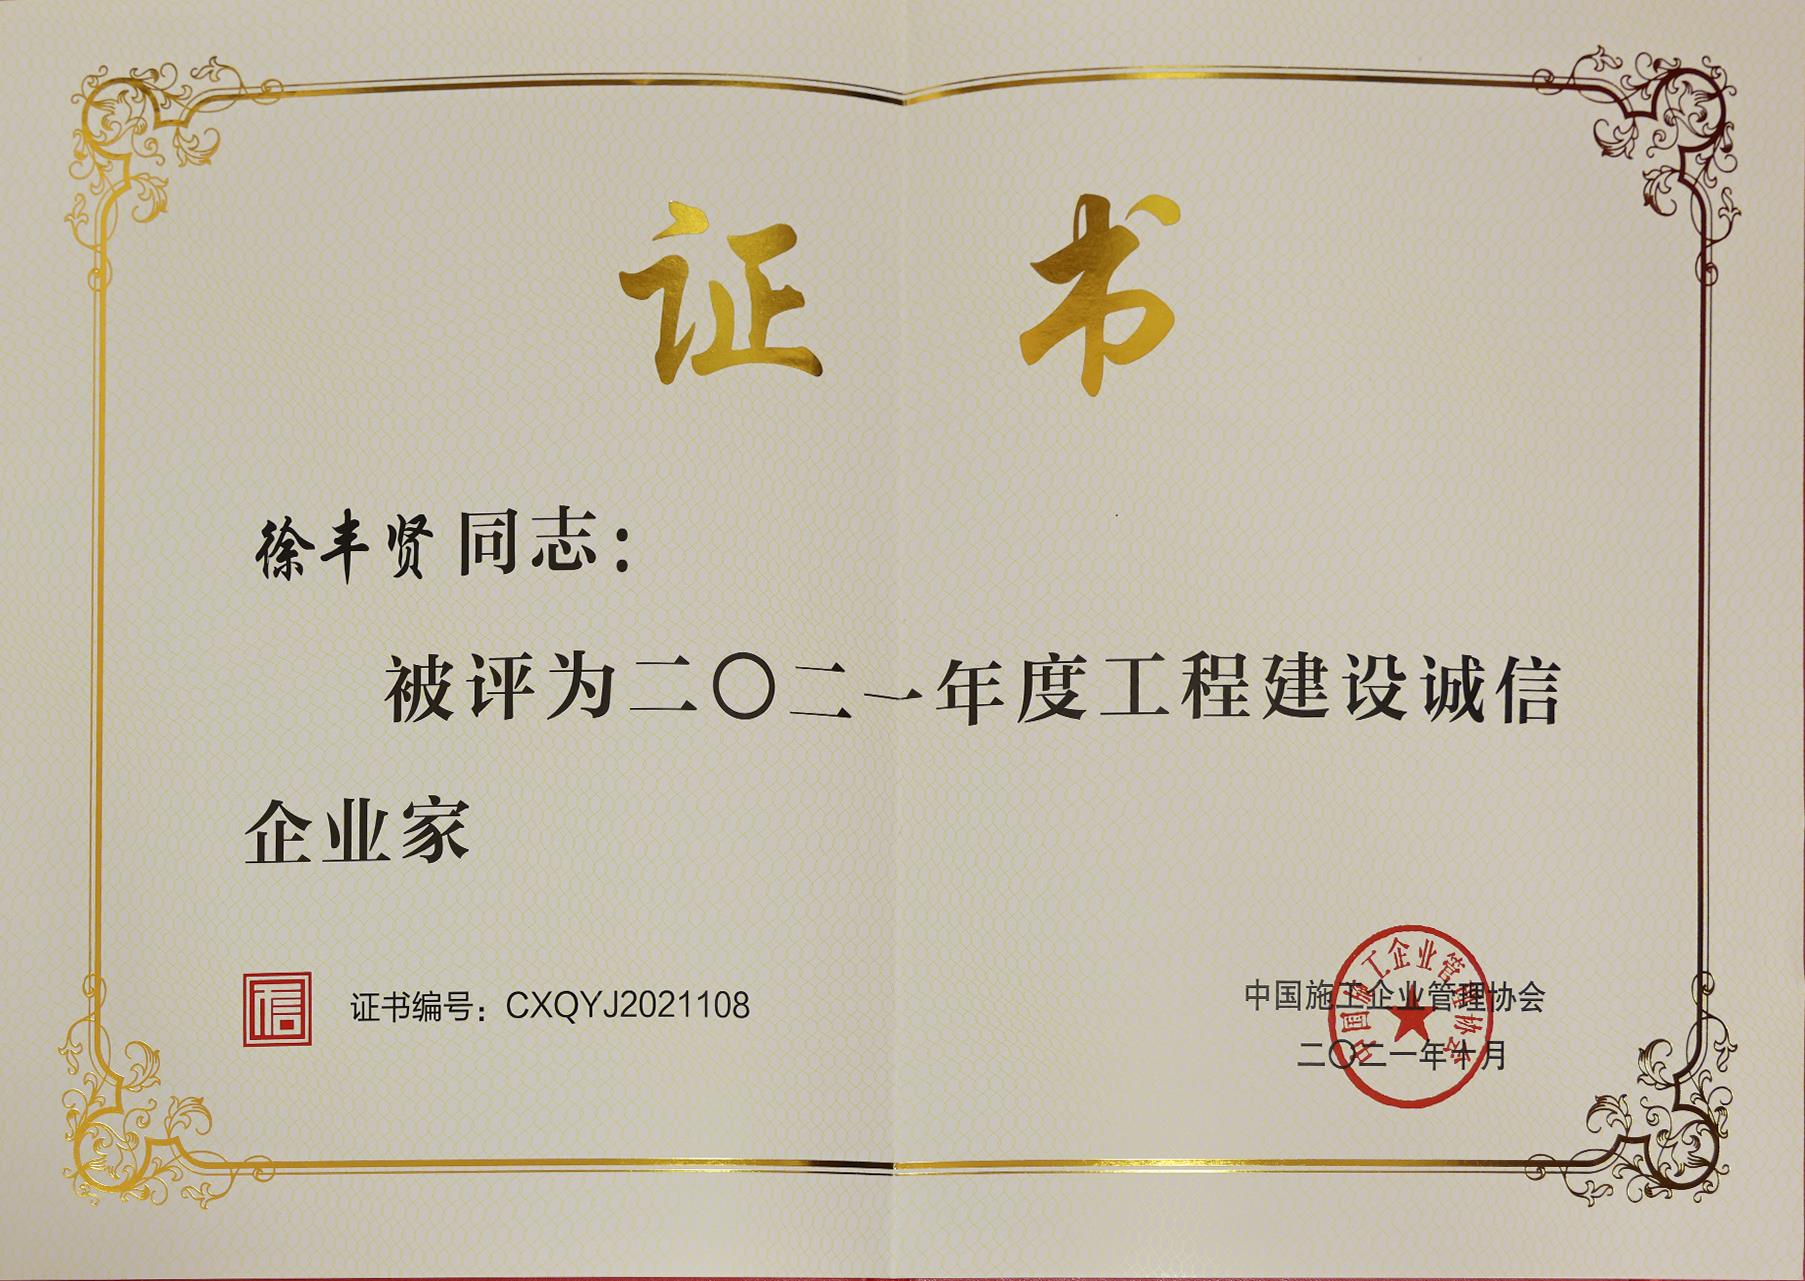 证书
徐丰贤同志：
被评为二〇二一年度工程建设诚信
企业家
信
证书编号：CXQYJ2021108
中国施工企业管理协会
二〇二一年十月
中国施工企业管理协会